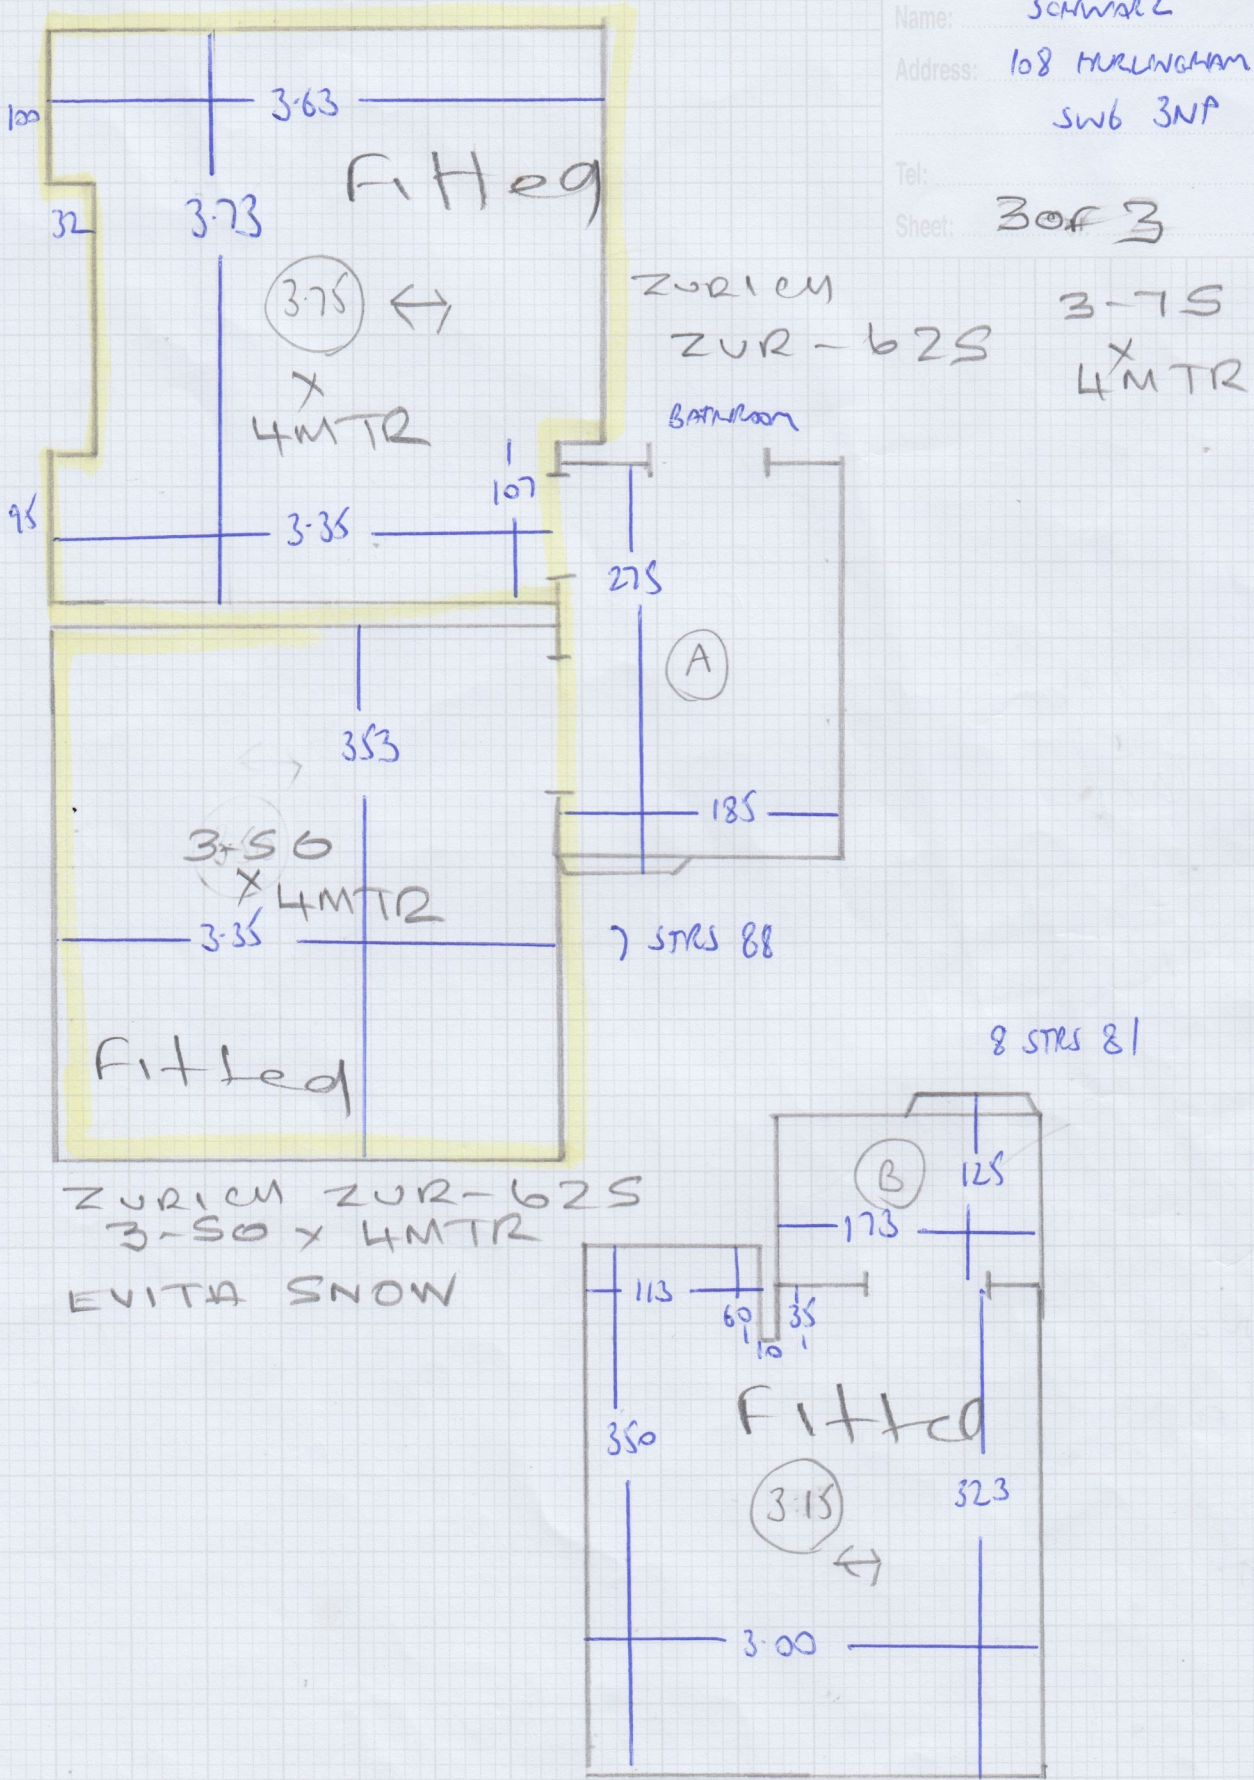 Name: SCHWARZ
Address: 108 HURLINGHAM
SW6 3NP
Tel:
Sheet: 3 of 3
100
3.63
Fitted
32
3.73
3.75 ↔
X
4MTR
ZURICH
ZUR-625
3-75
X
4MTR
BATHROOM
107
95
3.35
275
A
353
185
3-50
X 4MTR
3.35
7 STRS 88
Fitted
8 STRS 81
B
125
173
ZURICH ZUR-625
3-50 x 4MTR
EVITA SNOW
113
60
35
10
Fitted
350
3.15
323
↔
3.00